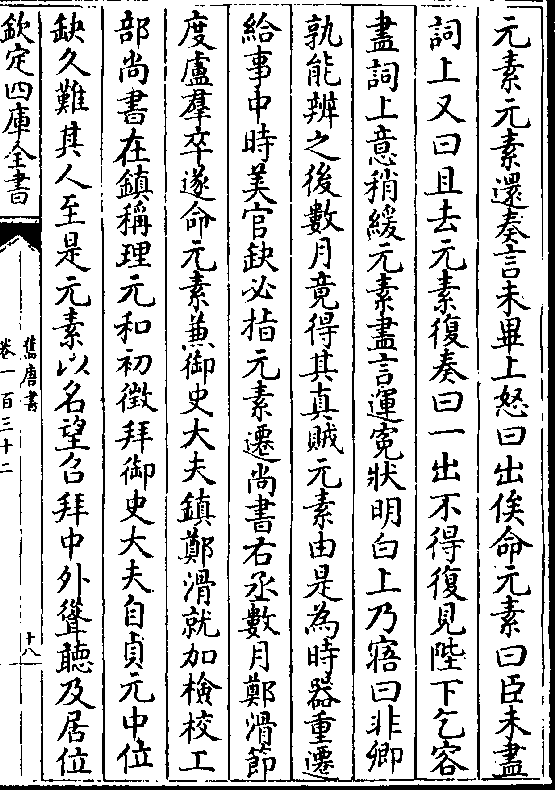 元素元素還奏言未畢上怒曰出俟命元素曰臣未盡
詞上又曰且去元素復奏曰一出不得復見陛下乞容
盡詞上意稍緩元素盡言運寃狀明白上乃寤曰非卿
孰能辨之後數月竟得其真賊元素由是為時器重遷
給事中時美官缺必指元素遷尚書右丞數月鄭滑節
度盧羣卒遂命元素兼御史大夫鎮鄭滑就加檢校工
部尚書在鎮稱理元和初徴拜御史大夫自貞元中位
缺久難其人至是元素以名望召拜中外聳聽及居位
欽定四庫全書
舊唐書
卷一百三十二
十八